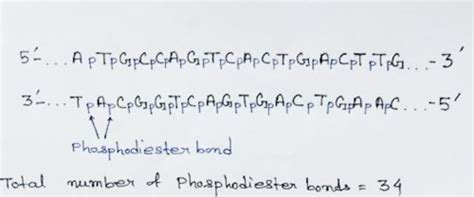 5'-...ApTpGpCpCpApGpTpCpApCpTpGpApCpTpTpG...-3'
3'-...TpApCpGpGpTpCpApGpTpGpApCpTpGpApApC...-5'
Phosphodiester bond
Total number of Phosphodiester bonds = 34